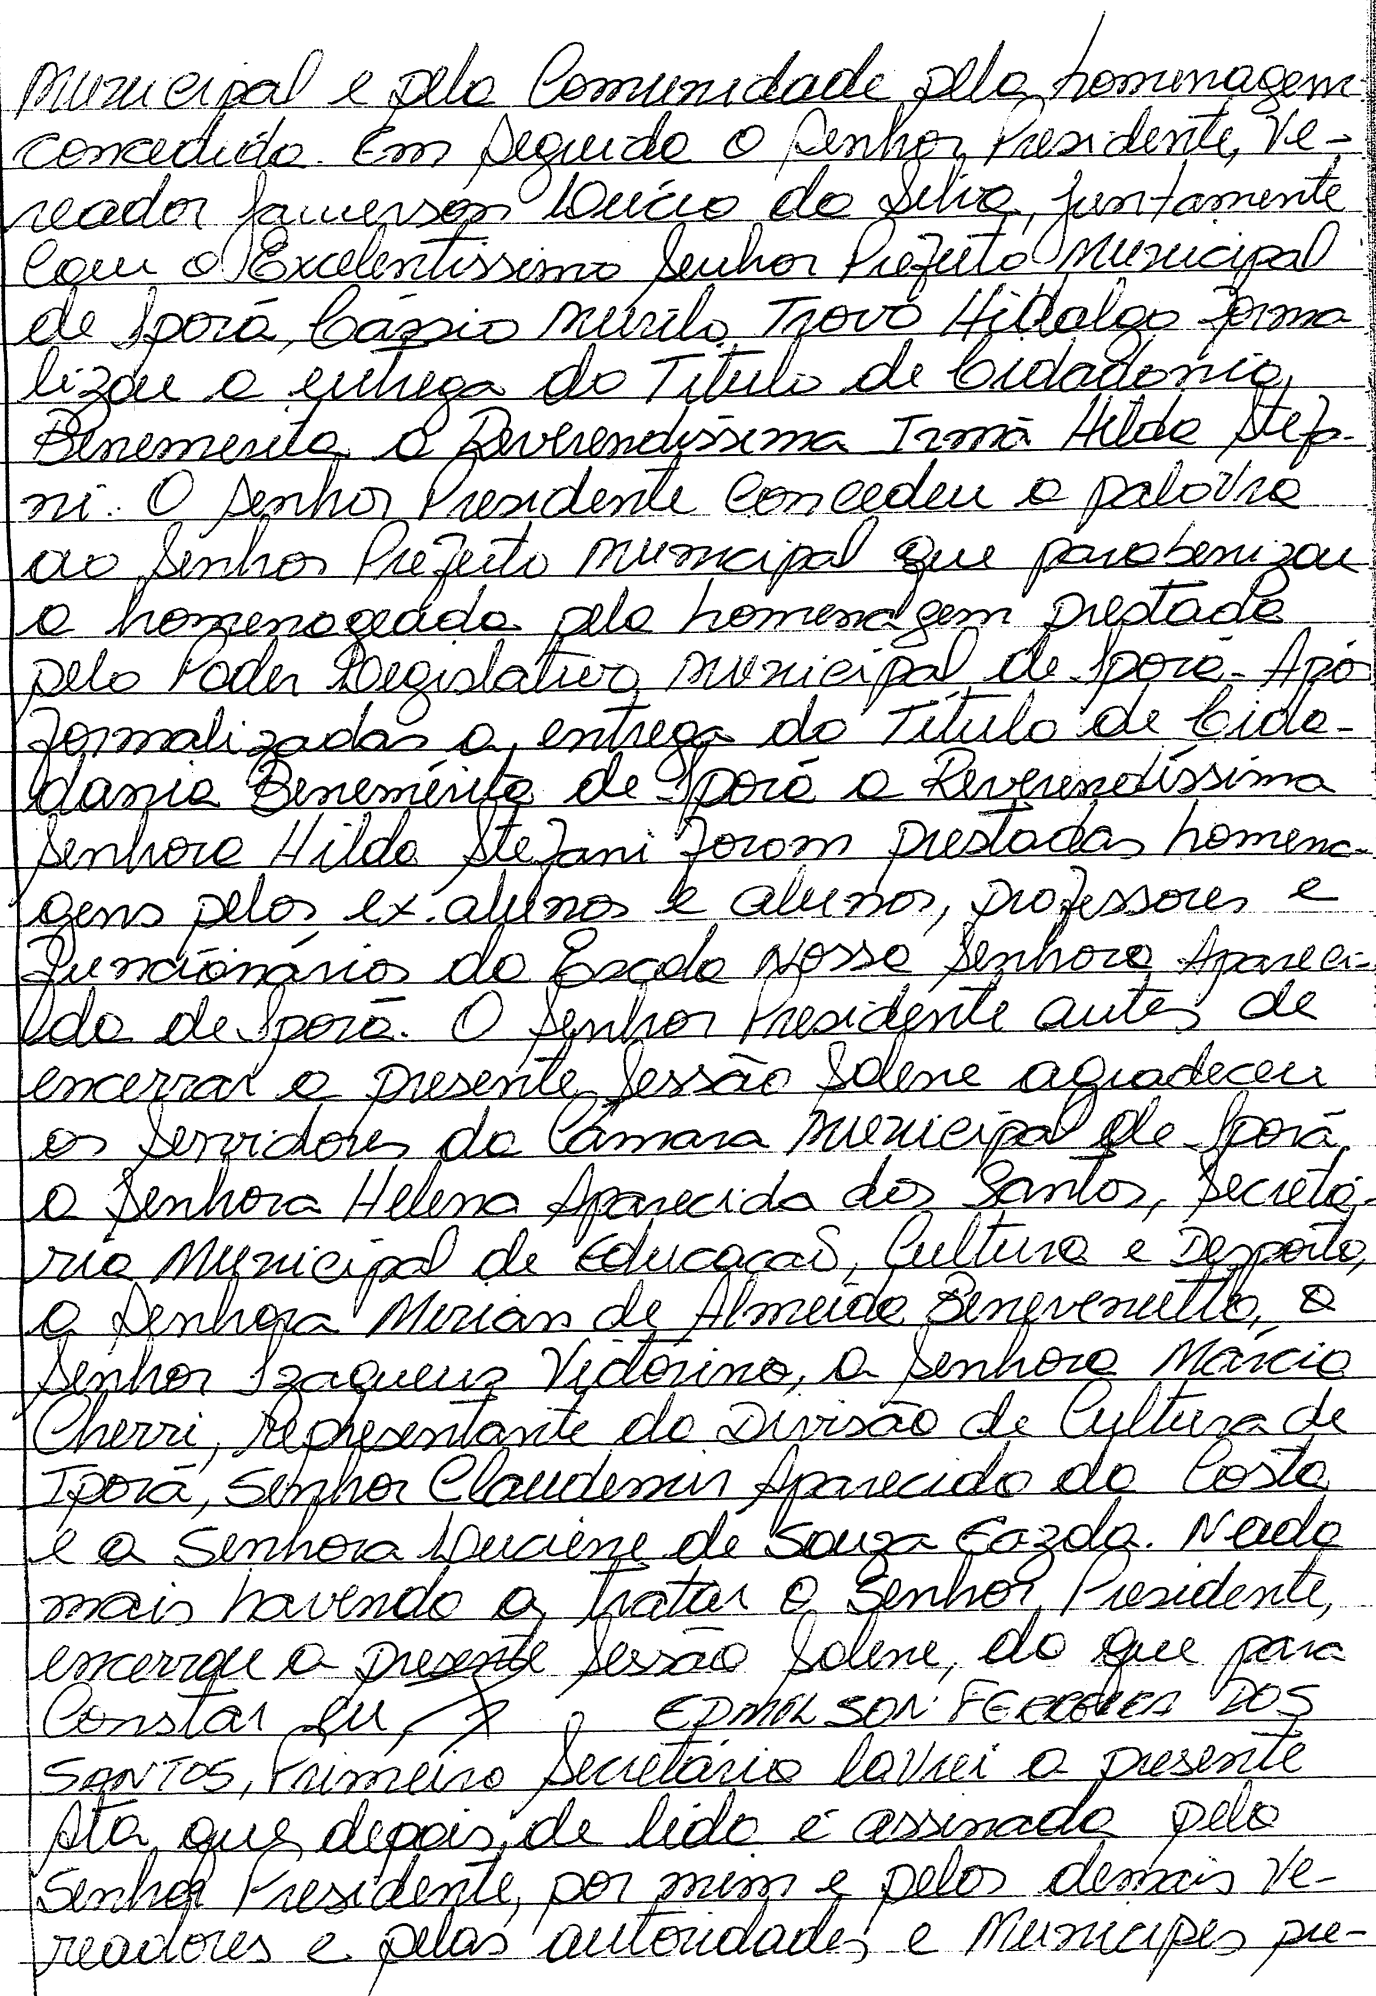 Municipal e pela Comunidade pela homenagem
concedida. Em seguida o Senhor Presidente, Ve-
reador Jamerson Lúcio da Silva, juntamente
com o Excelentíssimo Senhor Prefeito Municipal
de Iporã, Cássio Murilo Trovo Hidalgo forma
lizou a entrega do Titulo de Cidadania
Benemerita a Reverendissima Irmã Hilda Stefa-
ni. O Senhor Presidente concedeu a palavra
ao Senhor Prefeito Municipal que parabenizou
a homenageada pela homenagem prestada
pelo Poder Legislativo Municipal de Iporã. Apó
formalizadas a entrega do Titulo de Cida-
dania Benemérita de Iporã a Reverendíssima
Senhora Hilda Stefani foram prestadas homena-
gens pelos ex-alunos e alunos, professores e
funcionários da Escola Nossa Senhora Apareci-
da de Iporã. O Senhor Presidente antes de
encerrar a presente Sessão Solene agradeceu
os Servidores da Câmara Municipal de Iporã,
a Senhora Helena Aparecida dos Santos, Secretá-
ria Municipal de Educação, Cultura e Desporto,
a Senhora Mirian de Almeida Benevenutto, o
Senhor Izaqueuz Vidorino, a Senhora Márcia
Cherri, representante da Divisão de Cultura de
Iporã, Senhor Claudemir Aparecido da Costa
e a Senhora Luciene de Souza Cazda. Nada
mais havendo a tratar o Senhor Presidente,
encerrou a presente Sessão Solene, do que para
Constar eu, EDMILSON FERREIRA DOS
SANTOS, Primeiro Secretário lavrei a presente
Ata que depois de lida é assinada pelo
Senhor Presidente, por mim e pelos demais Ve-
readores e pelas autoridades e Municipes pre-